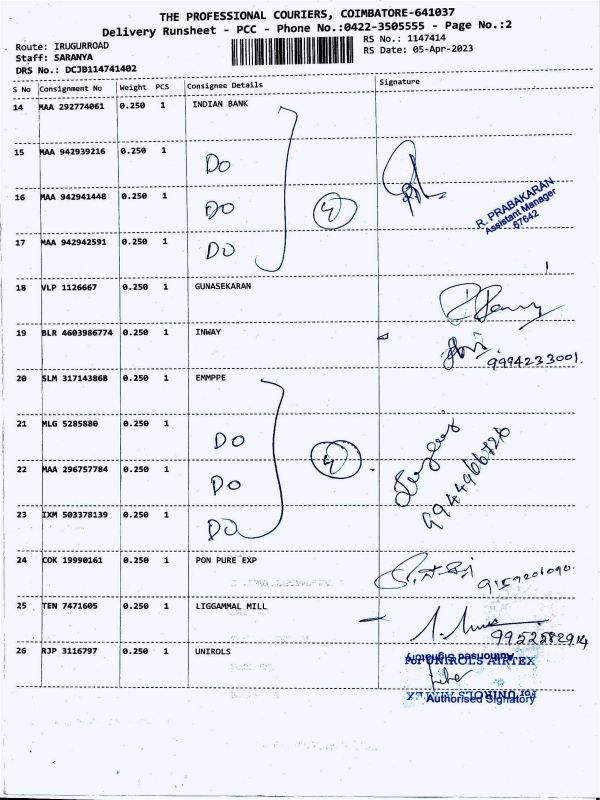 THE PROFESSIONAL COURIERS, COIMBATORE-641037
Delivery Runsheet - PCC - Phone No.:0422-3505555 - Page No.:2
Route: IRUGURROAD
RS No.: 1147414
Staff: SARANYA
RS Date: 05-Apr-2023
DRS No.: DCJB114741402
S No Consignment No Weight PCS Consignee Details Signature
14 MAA 292774061 0.250 1 INDIAN BANK
15 MAA 942939216 0.250 1 DO
16 MAA 942941448 0.250 1 DO 4
R. PRABAKARAN
Assistant Manager
67642
17 MAA 942942591 0.250 1 DO
18 VLP 1126667 0.250 1 GUNASEKARAN
19 BLR 4603986774 0.250 1 INWAY
9994233001.
20 SLM 317143868 0.250 1 EMMPPE
21 MLG 5285880 0.250 1 DO
22 MAA 296757784 0.250 1 DO 4
23 IXM 503378139 0.250 1 DO
24 COK 19990161 0.250 1 PON PURE EXP
9159201090.
25 TEN 7471605 0.250 1 LIGGAMMAL MILL
9952582914
26 RJP 3116797 0.250 1 UNIROLS
Authorised Signatory
For UNIROLS AIRTEX
For UNIROLS AIRTEX
Authorised Signatory